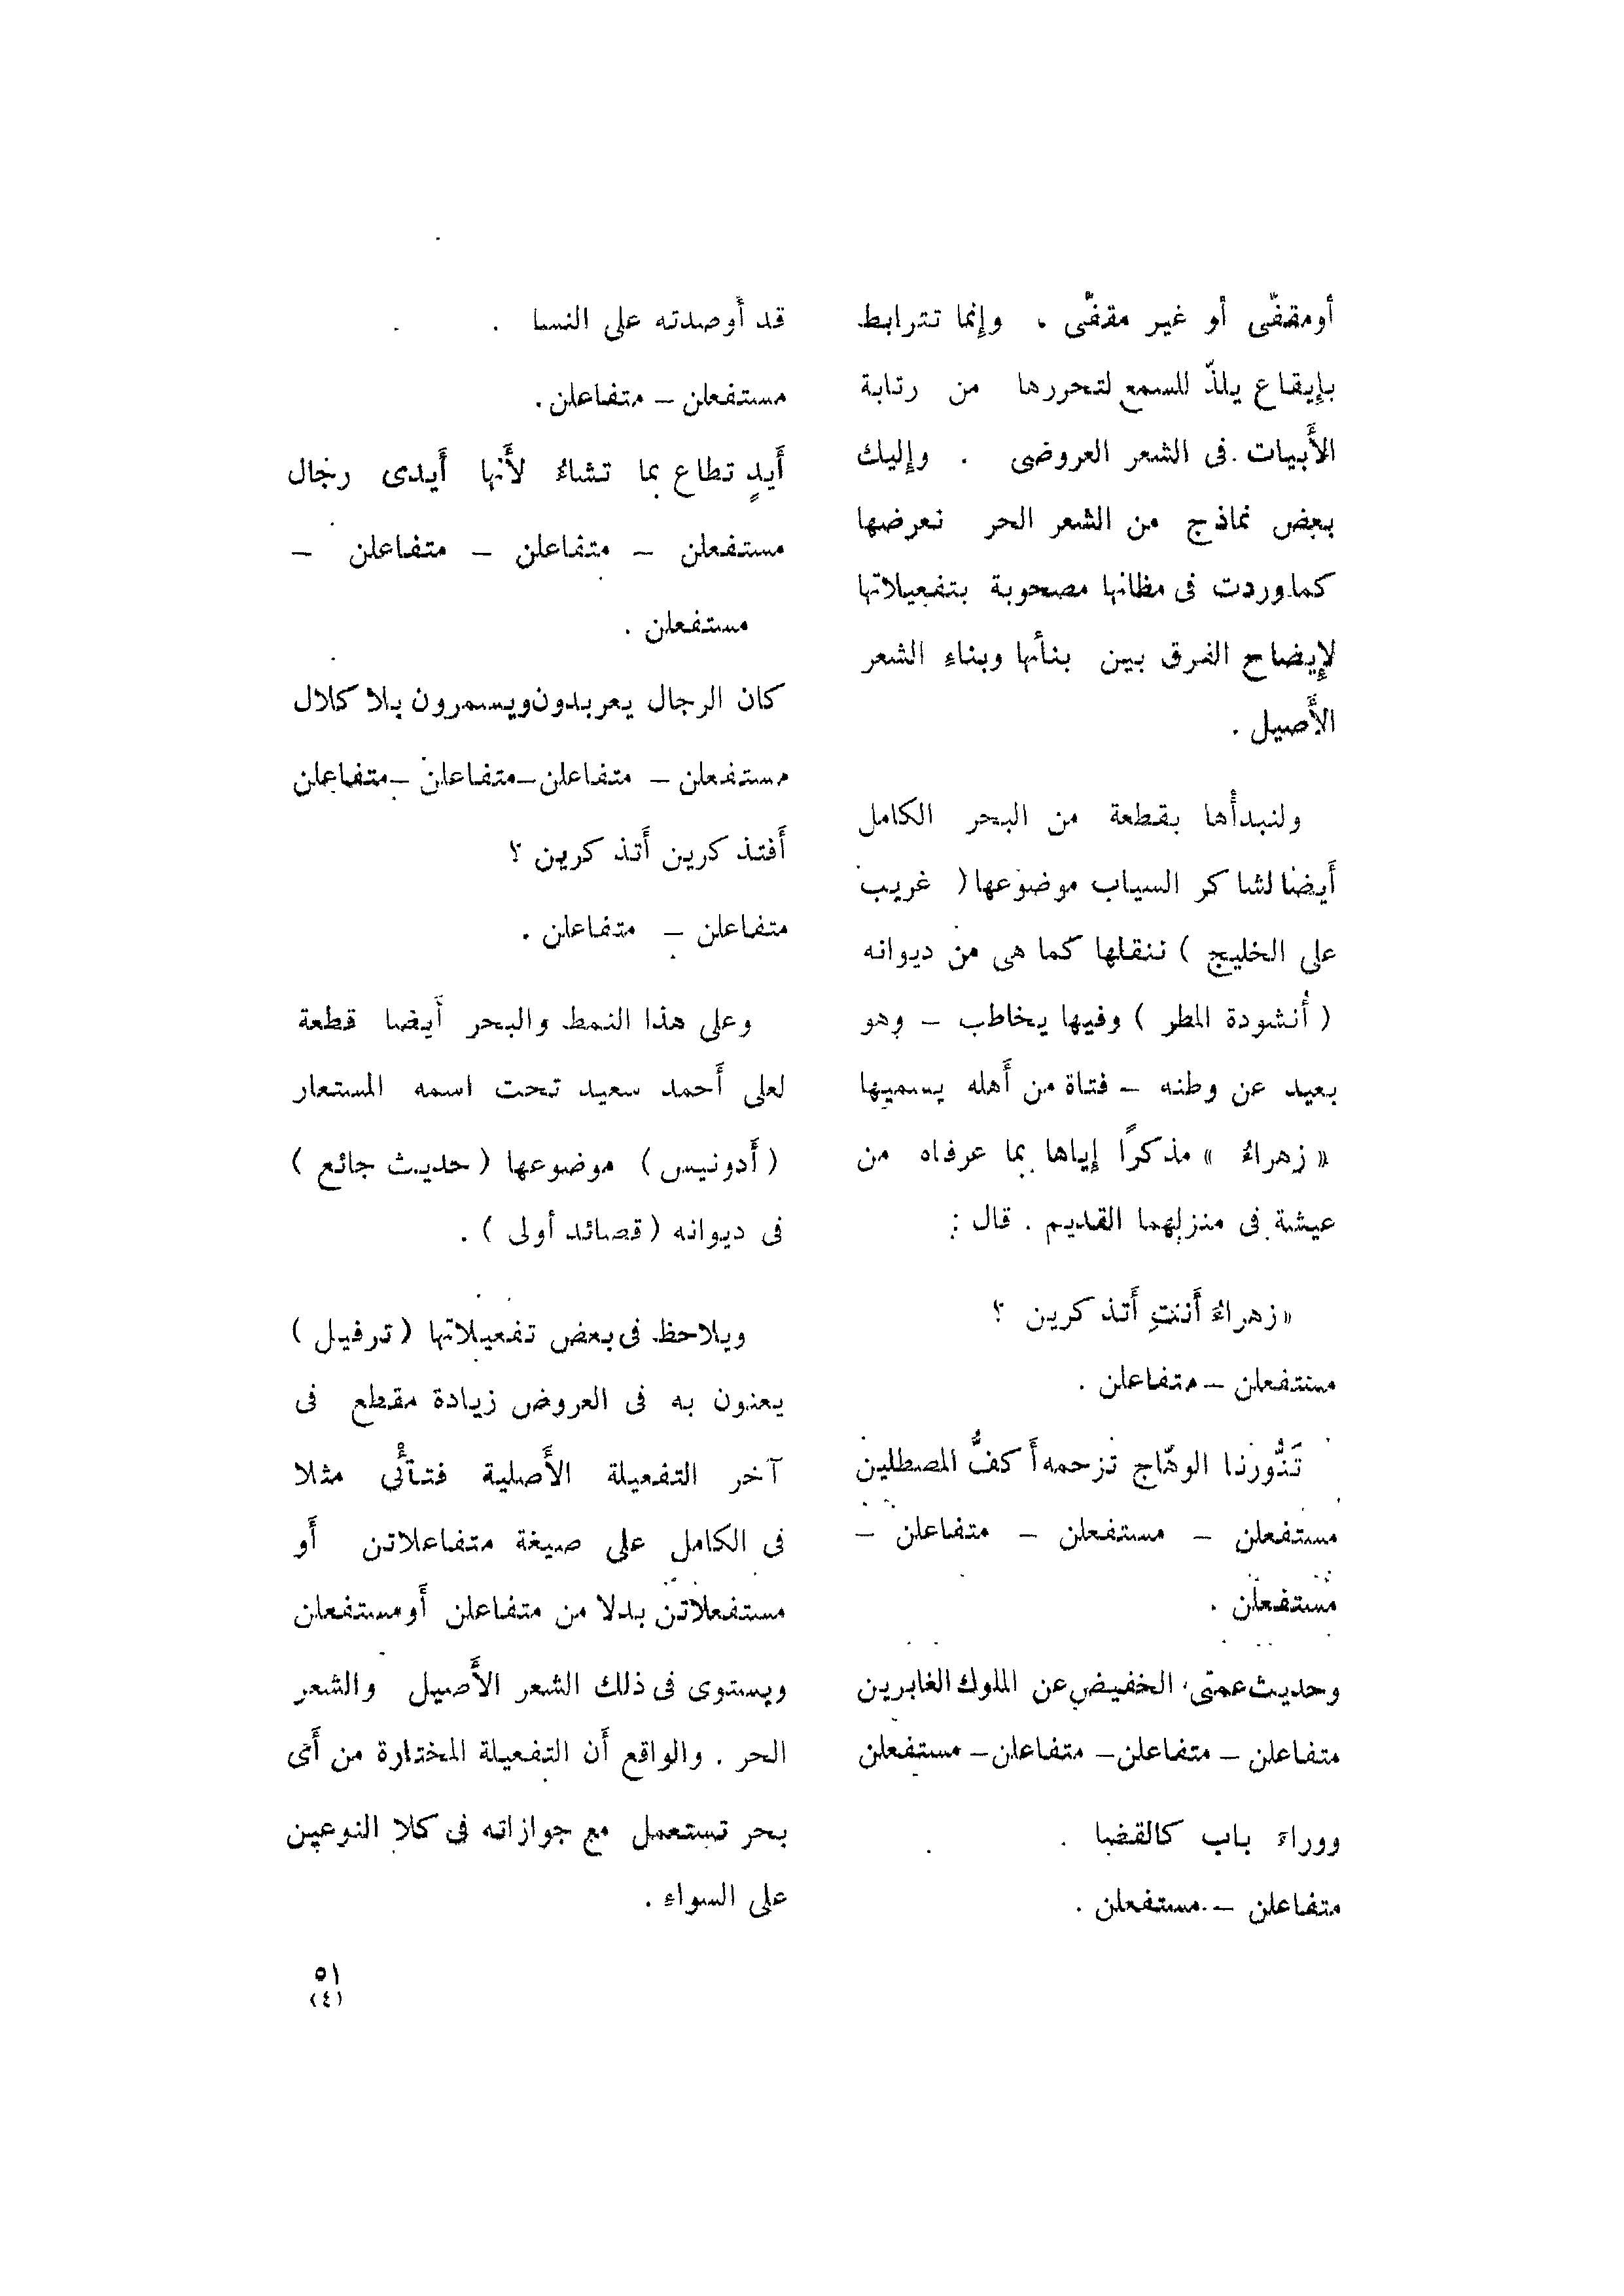 أومقفّى أو غير مقفّى . وإنما تترابط
بإيقاع يلذّ للسمع لتحررها من رتابة
الأبيات فى الشعر العروضى . وإليك
بعض نماذج من الشعر الحر نعرضها
كما وردت فى مظانها مصحوبة بتفعيلاتها
لإيضاح الفرق بين بنأنها وبناء الشعر
الأصيل .
ولنبدأها بقطعة من البحر الكامل
أيضا لشاكر السياب موضوعها ( غريب
على الخليج ) ننقلها كما هى من ديوانه
( أنشودة المطر ) وفيها يخاطب – وهو
بعيد عن وطنه – فتاة من أهله يسميها
« زهراءُ » مذكرًا إياها بما عرفاه من
عيشة فى منزلهما القديم . قال :
« زهراءُ أنتِ أتذكرين ؟
مستفعلن – متفاعلن .
تَنُّورنا الوهّاج تزحمه أكفُّ المصطلين
مستفعلن – مستفعلن – متفاعلن –
مستفعلن .
وحديث عمتى الخفيض عن الملوك الغابرين
متفاعلن – متفاعلن – متفاعلن – مستفعلن
ووراءَ باب كالقضا .
متفاعلن – مستفعلن .
قد أوصدته على النسا .
مستفعلن – متفاعلن .
أيدٍ تطاع بما تشاءُ لأنها أيدى رجال
مستفعلن – متفاعلن – متفاعلن –
مستفعلن .
كان الرجال يعربدون ويسمرون بلا كلال
مستفعلن – متفاعلن – متفاعلن – متفاعلن
أفتذكرين أتذكرين ؟
متفاعلن – متفاعلن .
وعلى هذا النمط والبحر أيضا قطعة
لعلى أحمد سعيد تحت اسمه المستعار
( أدونيس ) موضوعها ( حديث جائع )
فى ديوانه ( قصائد أولى ) .
ويلاحظ فى بعض تفعيلاتها ( ترفيل )
يعنون به فى العروض زيادة مقطع فى
آخر التفعيلة الأصلية فتأتى مثلا
فى الكامل على صيغة متفاعلاتن أو
مستفعلاتن بدلا من متفاعلن أو مستفعلن
ويستوى فى ذلك الشعر الأصيل والشعر
الحر . والواقع أن التفعيلة المختارة من أى
بحر تستعمل مع جوازاته فى كلا النوعين
على السواء .
٥١
(٤)